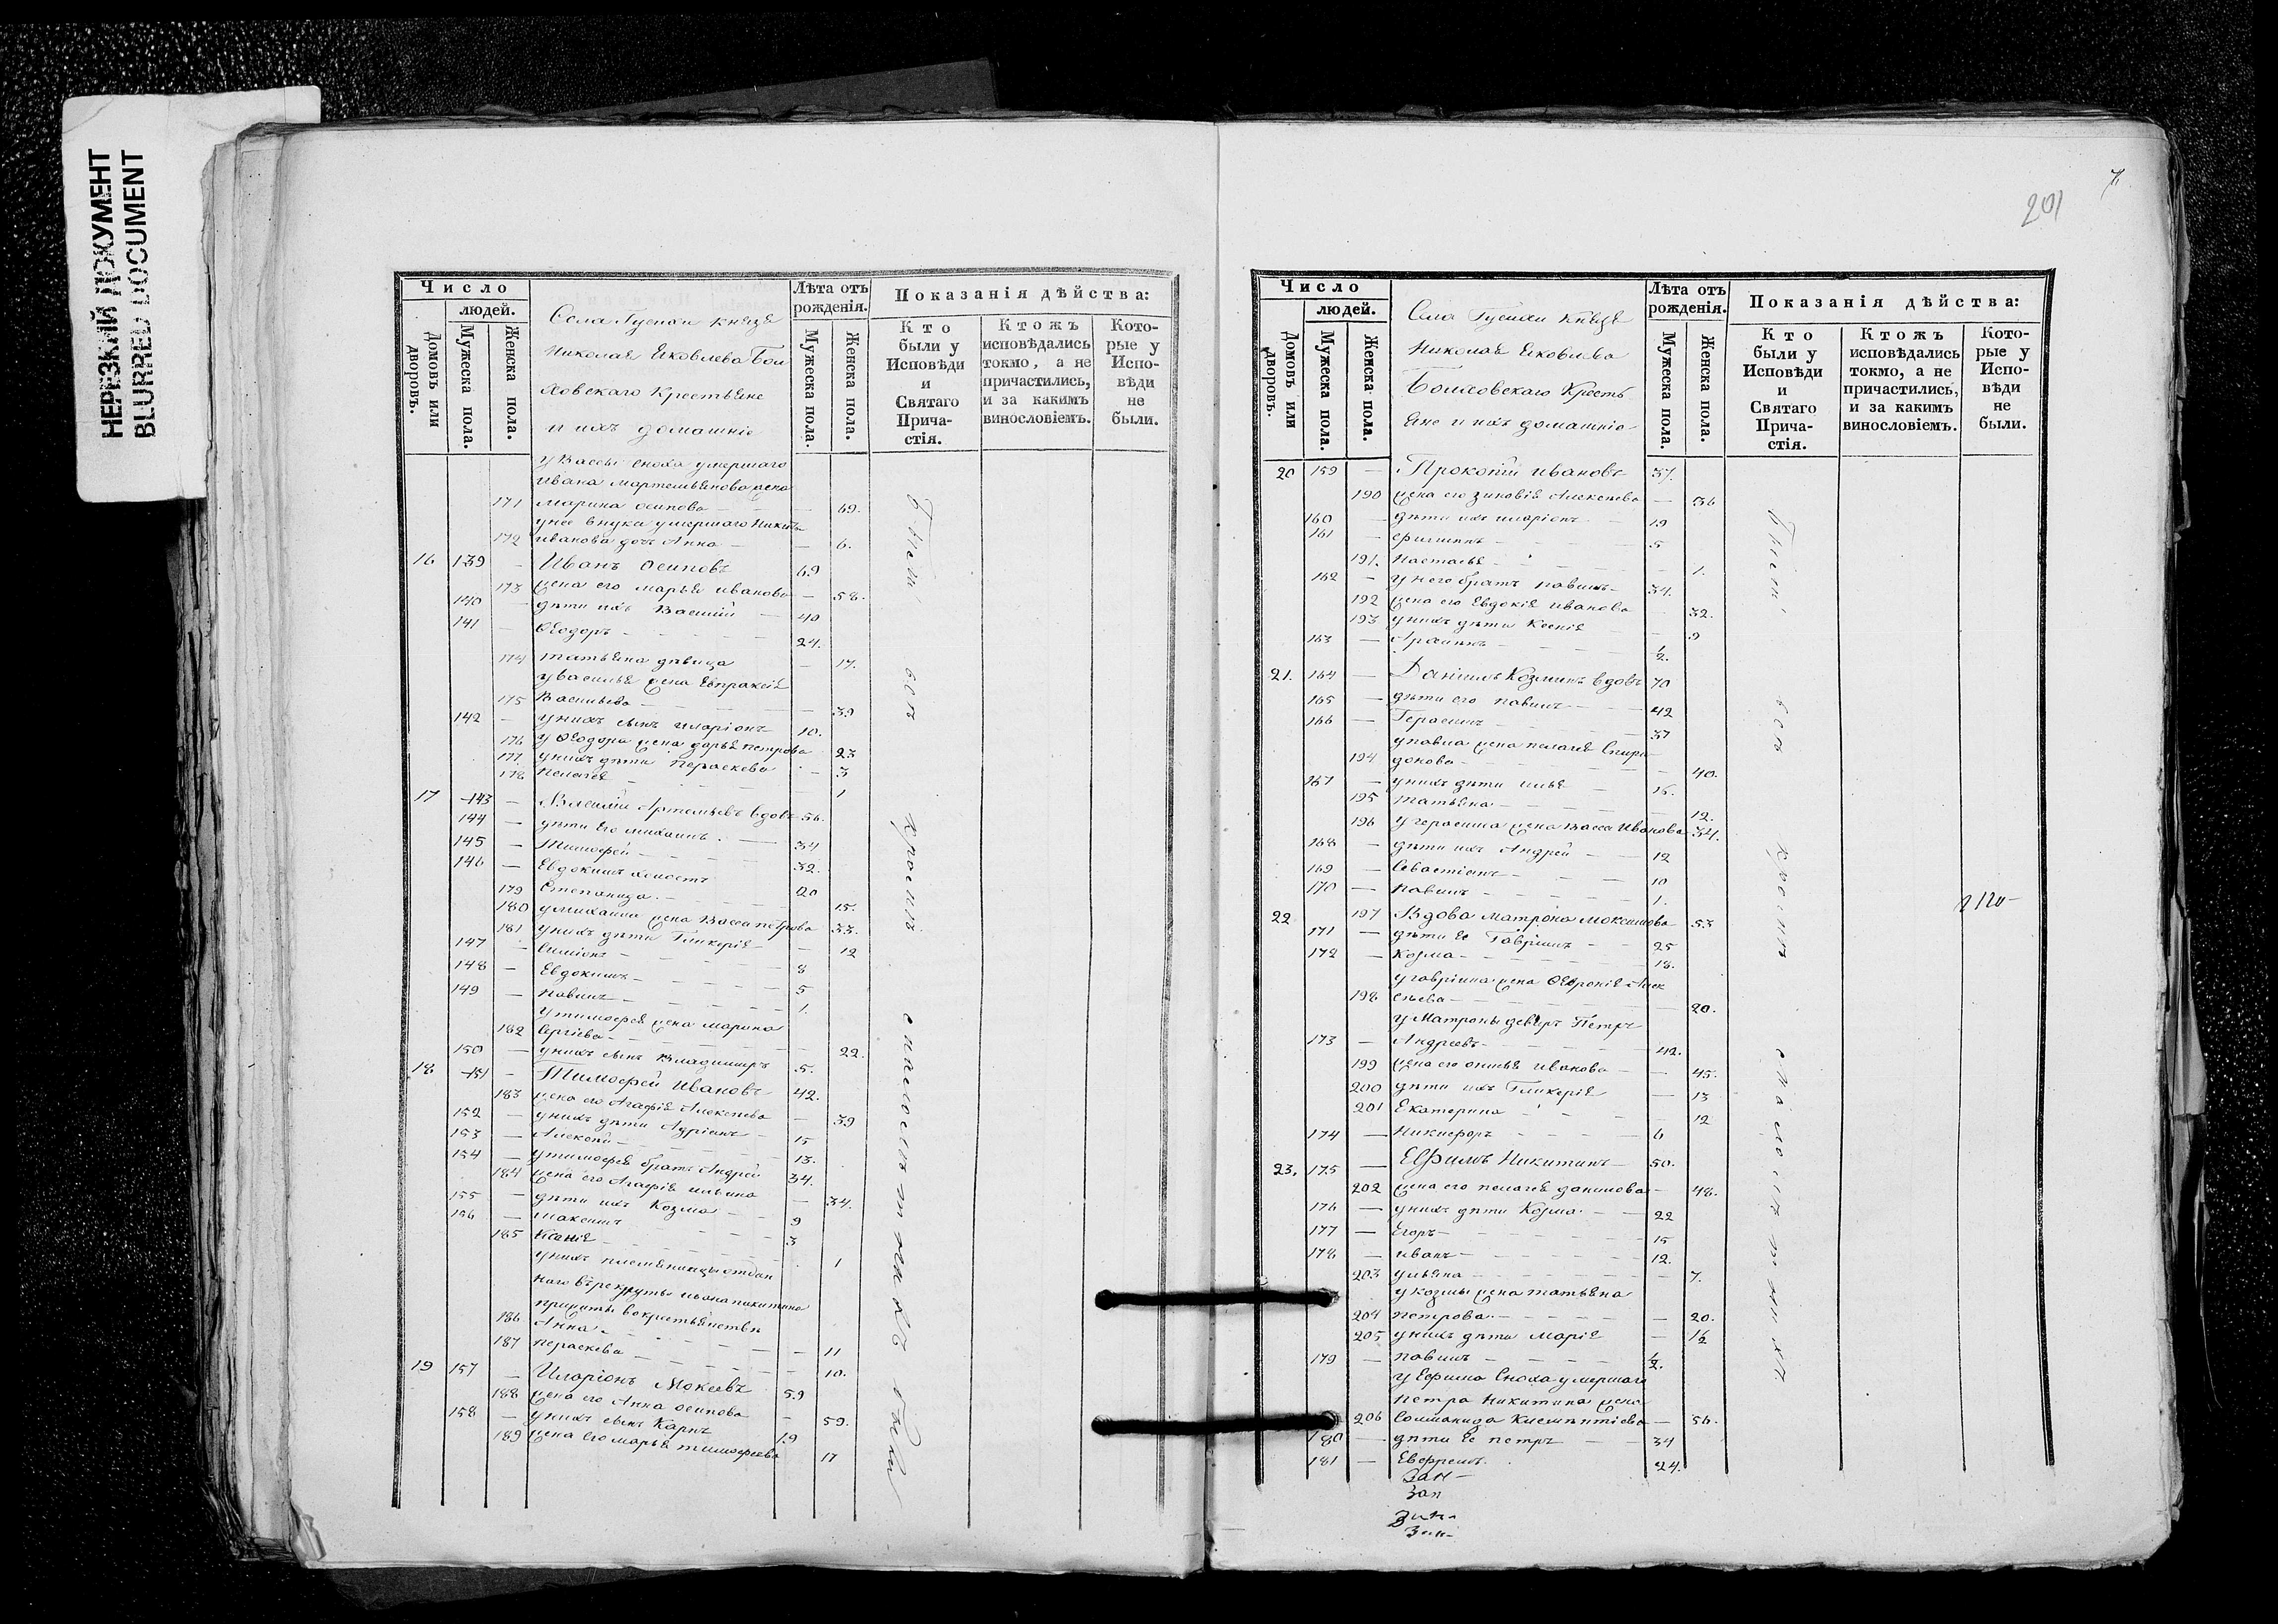 НЕРЕЗКИЙ ДОКУМЕНТ
BLURRED DOCUMENT
Число
людей.
Домовъ или дворовъ.
Мужеска пола.
Женска пола.
Села Гусихи князя
Николая Яковлева
ховскаго крестьяне
и ихъ домашніе
Лѣта отъ рожденія.
Мужеска пола.
Женска пола.
Показанія дѣйства:
Кто были у Исповѣди и Святаго Прича-стія.
Ктожъ исповѣдались токмо, а не причастились, и за какимъ винословіемъ.
Кото-рые у Испо-вѣди не были.
у Вассы сноха умершаго
ивана мартемьянова жена
171 Марина осипова — 69.
у нее внука умершаго Никиты
172 иванова дочь Анна — 6.
16 139 — Иванъ Осиповъ 69
173 жена его марья иванова — 58.
140 — дѣти ихъ Василій — 40
141 — Ѳеодоръ — 24.
174 татьяна дѣвица — 17.
у василья жена Евпраксія
175 Васильева — 39
142 — у нихъ сынъ иларіонъ 10.
176 у Ѳеодора жена дарья петрова 23
177 у нихъ дѣти Параскева — 3
178 пелагея — 1
17 143 — Василій Артемьевъ вдовъ 56.
144 — дѣти его михаилъ — 34
145 — Тимоѳей — 32.
146 — Евдокимъ холостъ 20
179 Степанида — 15.
180 у михаила жена Васса петрова 33.
181 у нихъ дѣти Гликерія — 12
147 — Симіонъ — 8
148 — Евдокимъ — 5
149 — павелъ — 1.
у тимоѳея жена марина
182 Сергіева — 22.
150 — у нихъ сынъ Владимиръ 5.
18 151 — Тимоѳей Ивановъ 42.
183 жена его Агафія Алексѣева — 39
152 — у нихъ дѣти Адріанъ — 15
153 — Алексѣй — 13.
154 — у тимоѳея братъ Андрей 34.
184 жена его Агафія ильина — 34.
155 — дѣти ихъ Козма — 9
156 — максимъ 3
185 Ксенія — 1
у нихъ племянницы отдан
наго в рекруты ивана никитина
186 Анна — 11
187 параскева — 10.
19 157 — Иларіонъ Мокеевъ 59
188 жена его Анна осипова — 59.
158 — у нихъ сынъ Карпъ 19
189 жена его марья тимоѳеева 17
Были
всѣ
кромѣ
малолѣтнихъ
были
201
Число
людей.
Домовъ или дворовъ.
Мужеска пола.
Женска пола.
Села Гусихи князя
Николая Яковлева
Крестья
яне и ихъ домашніе
Лѣта отъ рожденія.
Мужеска пола.
Женска пола.
Показанія дѣйства:
Кто были у Исповѣди и Святаго Прича-стія.
Ктожъ исповѣдались токмо, а не причастились, и за какимъ винословіемъ.
Кото-рые у Испо-вѣди не были.
20 159 — Прокопій ивановъ 37.
190 жена его зиновія Алексѣева — 36
160 — дѣти ихъ иларіонъ — 19
161 — филипъ — 5
191. Настасья — 1.
162 — у него братъ павелъ — 34.
192 жена его Евдокія иванова 32.
193 у нихъ дѣти Ксенія — 9
163 — ½.
21. 164 — Даніилъ Козминъ вдовъ 70
165 — дѣти его павелъ — 42
166 — Герасимъ — 37
у павла жена пелагея Спири
194 донова — 40.
167 — у нихъ дѣти илья — 16.
195 татьяна — 12.
196 у герасима жена васса Иванова 34.
168 — дѣти ихъ Андрей — 12
169 — Севастіанъ — 10
170 — павелъ — 1.
22 197 Вдова матрона моксимова 53
171 — дѣти ее Гавріилъ — 25
172 — Козма — 18.
у гавріила жена Ѳевронія Алек
198 сѣева — 20.
у Матроны деверь Петръ
173 — Андреевъ — 42.
199 жена его иванова — 45.
200 дѣти ихъ Гликерія — 13
201 Екатерина — 12
174 — Никифоръ — 6
23. 175 — Ефимъ Никитинъ — 50.
202 жена его пелагея данилова — 48.
176 — у нихъ дѣти Козма — 22
177 — Егоръ — 15
178 — иванъ — 12.
203 ульяна — 7.
у козмы жена татьяна
204 петрова — 20.
205 у нихъ дѣти Марія — 1½
179 — павелъ — ½.
у Ефима Сноха умершаго
петра Никитина жена
206 Соломанида — 56.
180 — дѣти ее петръ — 34
181 — Евфремъ. 24.
Были
всѣ
кромѣ
малолѣтнихъ